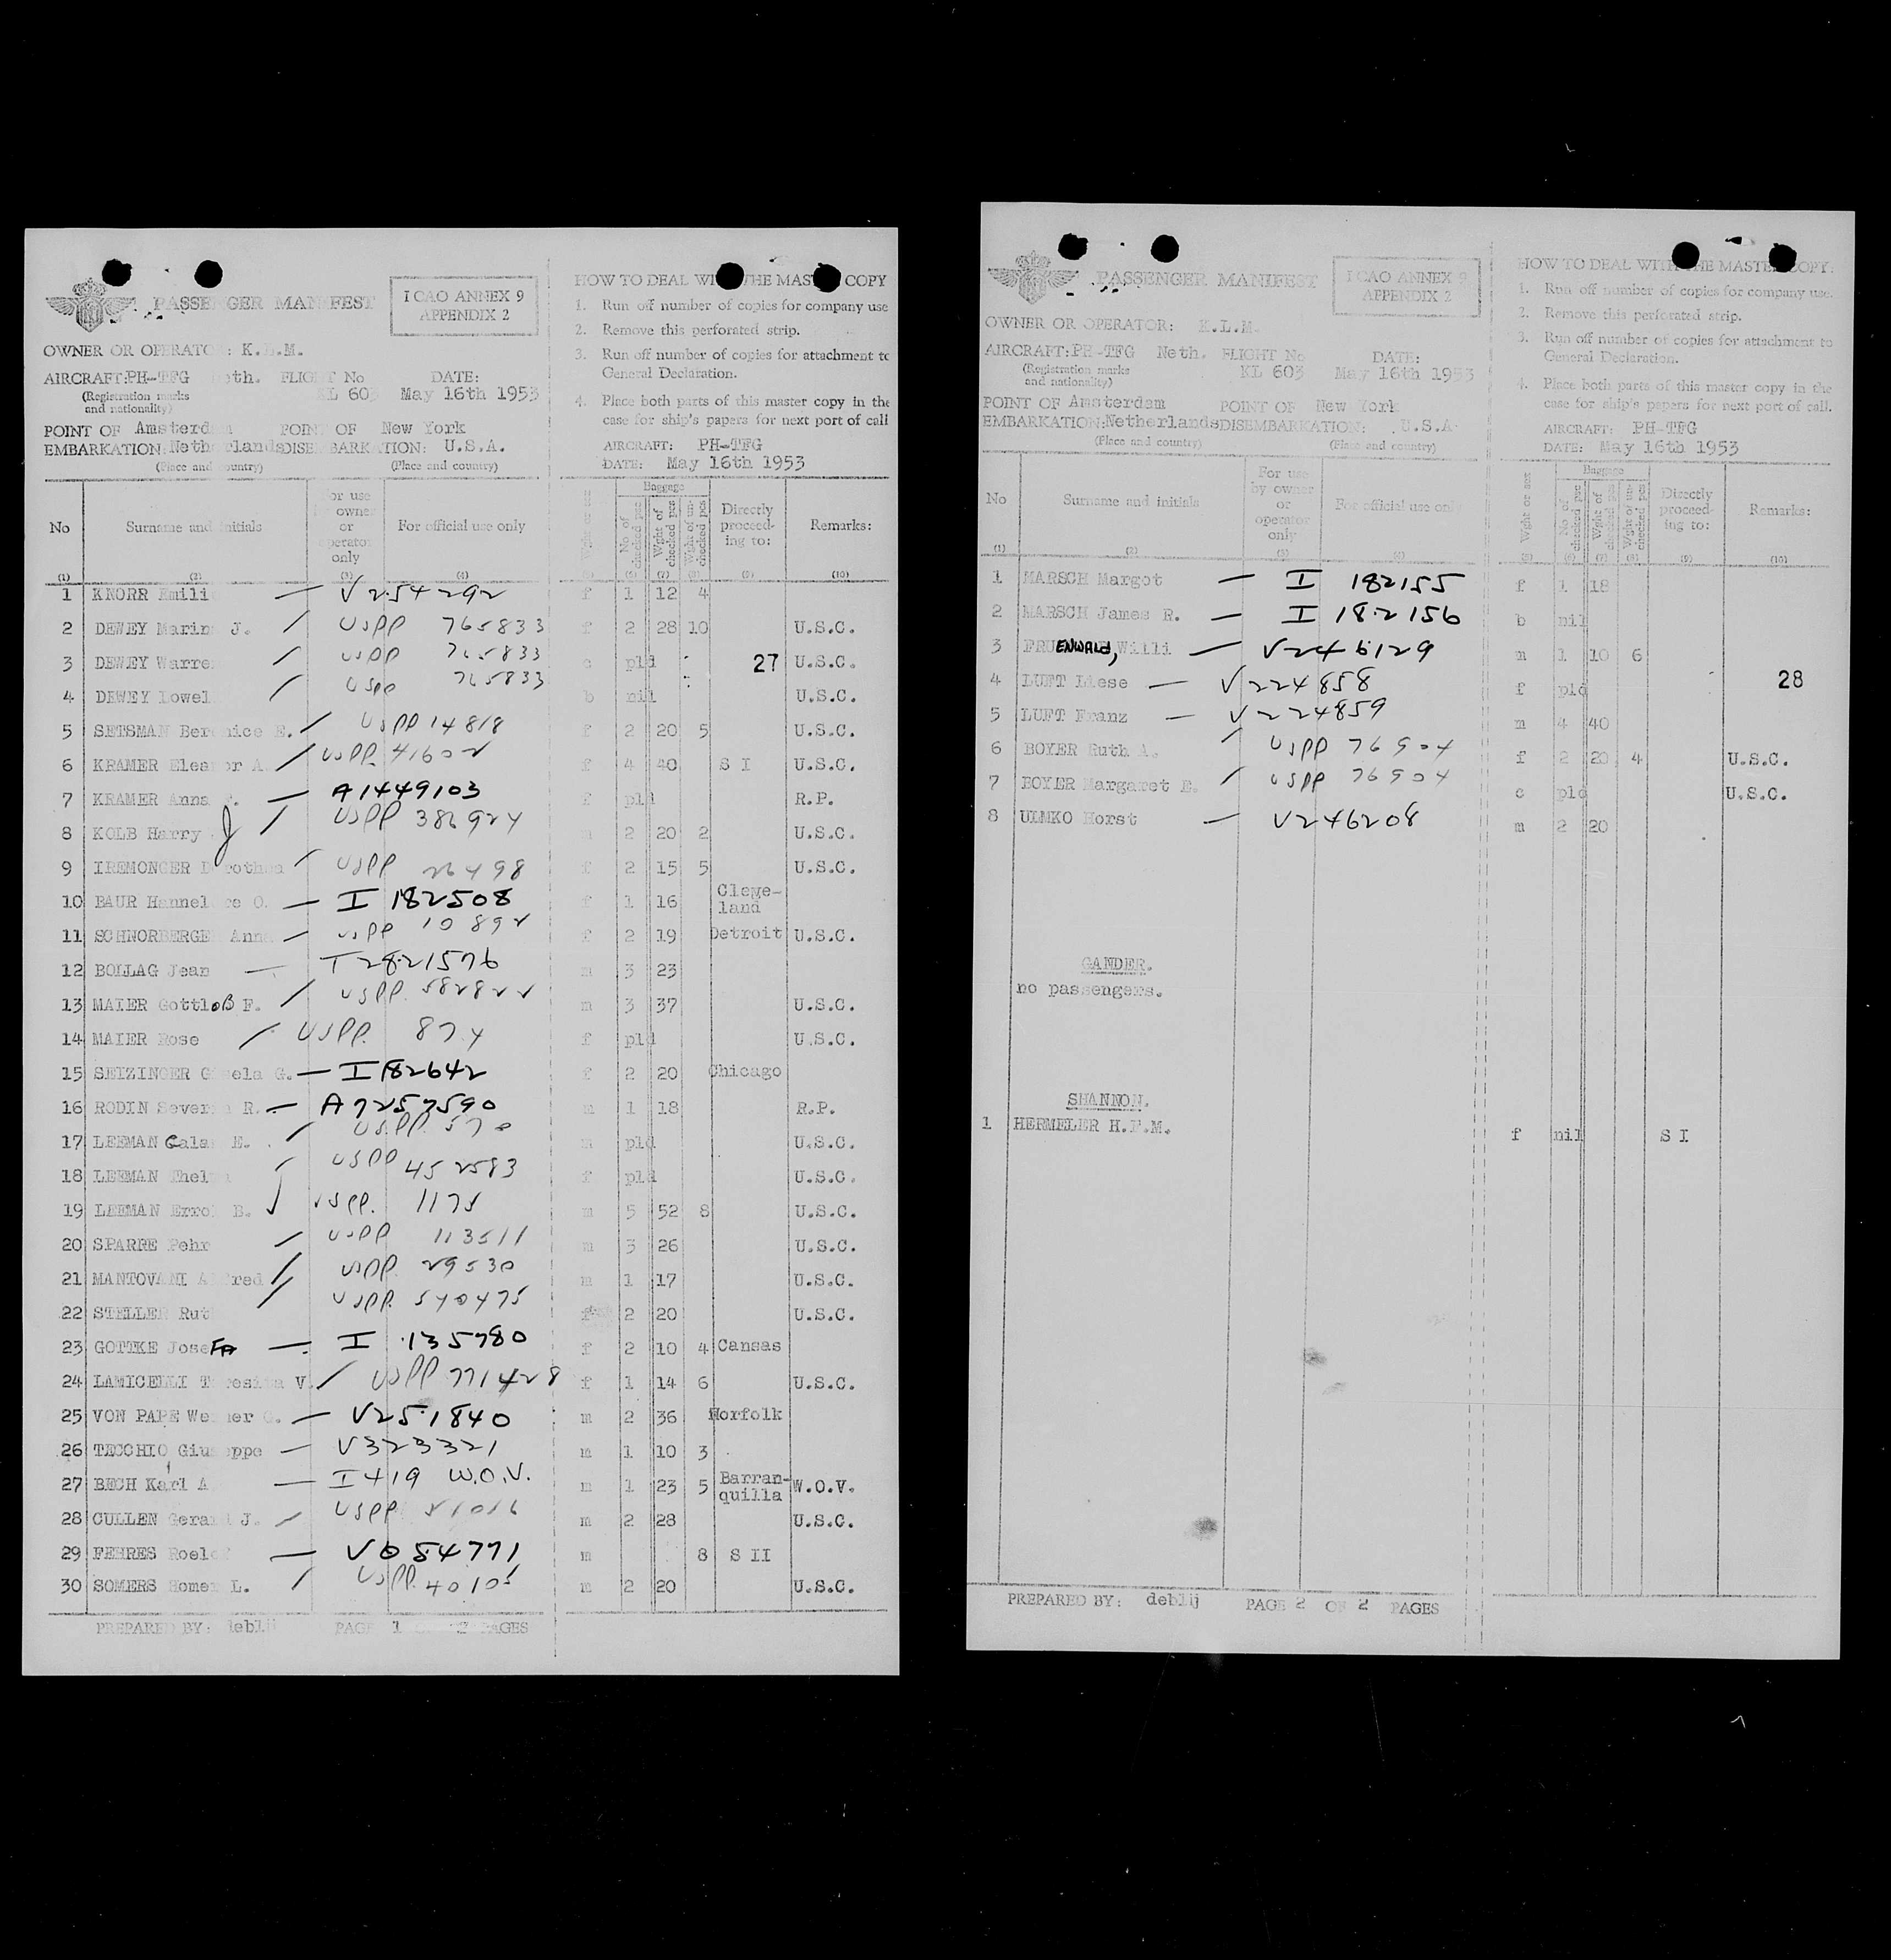 PASSENGER MANIFEST
ICAO ANNEX 9
APPENDIX 2
OWNER OR OPERATOR: K.L.M.
AIRCRAFT: PH-TFG Neth. FLIGHT No DATE:
(Registration marks and nationality) KL 603 May 16th 1953
POINT OF Amsterdam POINT OF New York
EMBARKATION: Netherlands DISEMBARKATION: U.S.A.
(Place and country) (Place and country)
HOW TO DEAL WITH THE MASTER COPY
1. Run off number of copies for company use
2. Remove this perforated strip.
3. Run off number of copies for attachment to
General Declaration.
4. Place both parts of this master copy in the
case for ship's papers for next port of call
AIRCRAFT: PH-TFG
DATE: May 16th 1953
No Surname and initials For use by owner or operator only For official use only Baggage No of checked pcs Wght of checked pcs Wght of un-checked pcs Directly proceed-ing to: Remarks:
(1) (2) (3) (4) (6) (7) (8) (9) (10)
1 KNORR Emili — V254292 f 1 12 4
2 DEWEY Marin J. / USPP 765833 f 2 28 10 U.S.C.
3 DEWEY Warre / USPP 765833 c pld 27 U.S.C.
4 DEWEY Lowel / USPP 765833 b nil U.S.C.
5 SETSMAN Bernice E. / USPP 14818 f 2 20 5 U.S.C.
6 KRAMER Eleanor A. / USPP 41602 f 4 40 S I U.S.C.
7 KRAMER Anna — A1449103 f pld R.P.
8 KOLB Harry J / USPP 386924 m 2 20 2 U.S.C.
9 IREMONGER Dorothea / USPP 26498 f 2 15 5 U.S.C.
10 BAUR Hannelore O. — I 182508 f 1 16 Cleve-land
11 SCHNORBERGE Anna — USPP 10892 f 2 19 Detroit U.S.C.
12 BOLLAG Jean — T2821576 m 3 23
13 MAIER GottloB F. / USPP 582822 m 3 37 U.S.C.
14 MAIER Rose / USPP. 874 f pld U.S.C.
15 SEIZINGER Gisela G. — I 182642 f 2 20 Chicago
16 RODIN Severin R. — A7257590 m 1 18 R.P.
17 LEEMAN Cala E. / USPP 570 m pld U.S.C.
18 LEEMAN Thelma / USPP 452583 f pld U.S.C.
19 LEEMAN Errol B. / USPP. 1175 m 5 52 8 U.S.C.
20 SPARRE Pehr / USPP 113511 m 3 26 U.S.C.
21 MANTOVANI Alfred / USPP. 29530 m 1 17 U.S.C.
22 STELLER Rut / USPP. 540475 f 2 20 U.S.C.
23 GOTTKE JoseFA — I 135780 f 2 10 4 Cansas
24 LAMICELLI Teresita V. / USPP 771428 f 1 14 6 U.S.C.
25 VON PAPE Werner G. — V251840 m 2 36 Norfolk
26 TECCHIO Giuseppe — V323321 m 1 10 3
27 BECH Karl A — I 419 W.O.V. m 1 23 5 Barran-quilla W.O.V.
28 CULLEN Gerard J. / USPP 51016 m 2 28 U.S.C.
29 FEHRES Roelof — V054771 m 8 S II
30 SOMERS Homer L. / USPP. 40105 m 2 20 U.S.C.
PREPARED BY: deblij PAGE 1 OF 2 PAGES
PASSENGER MANIFEST
ICAO ANNEX 9
APPENDIX 2
OWNER OR OPERATOR: K.L.M.
AIRCRAFT: PH-TFG Neth. FLIGHT No DATE:
(Registration marks and nationality) KL 603 May 16th 1953
POINT OF Amsterdam POINT OF New York
EMBARKATION: Netherlands DISEMBARKATION: U.S.A.
(Place and country) (Place and country)
HOW TO DEAL WITH THE MASTER COPY:
1. Run off number of copies for company use.
2. Remove this perforated strip.
3. Run off number of copies for attachment to
General Declaration.
4. Place both parts of this master copy in the
case for ship's papers for next port of call.
AIRCRAFT: PH-TFG
DATE: May 16th 1953
No Surname and initials For use by owner or operator only For official use only Wght or sex Baggage No of checked pcs Wght of checked pcs Wght of un-checked pcs Directly proceed-ing to: Remarks:
(1) (2) (3) (4) (5) (6) (7) (8) (9) (10)
1 MARSCH Margot — I 182155 f 1 18
2 MARSCH James R. — I 182156 b nil
3 FRUENWALD, Willi — V246129 m 1 10 6
4 LUFT Liese — V224858 f pld 28
5 LUFT Franz — V224859 m 4 40
6 BOYER Ruth A. / USPP 76904 f 2 20 4 U.S.C.
7 BOYER Margaret E. / USPP 76904 c pld U.S.C.
8 ULMKO Horst — V246208 m 2 20
GANDER.
no passengers.
SHANNON.
1 HERMELER H.F.M. f nil S I
PREPARED BY: deblij PAGE 2 OF 2 PAGES